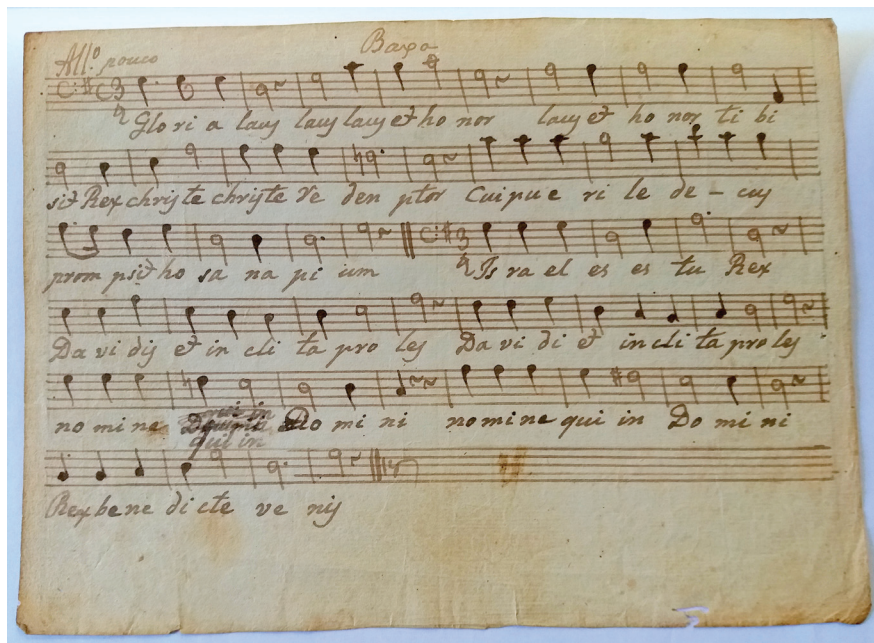 All.º pouco Baxo
Glo ri a laus laus laus et ho nor laus et ho nor ti bi
sit Rex christe christe Re den ptor Cui pue ri le de - cus
prom psit ho sa na pi um Is ra el es es tu Rex
Da vi dis et in cli ta pro les Da vi di et in cli ta pro les
no mi ne qui in Do mi ni no mi ne qui in Do mi ni
qui in
Rex be ne di cte ve nis